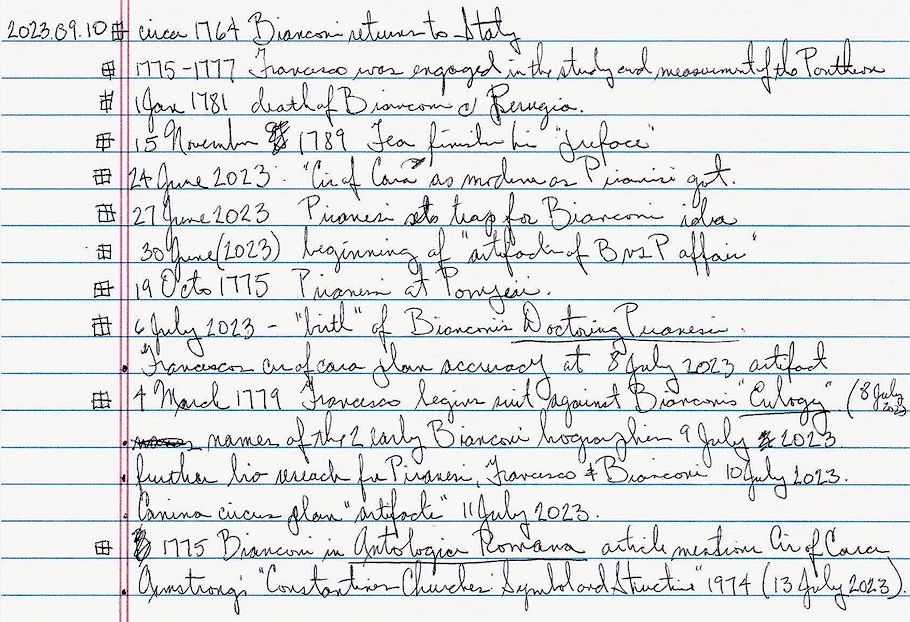 2023.09.10 circa 1764 Bianconi returns to Italy
1775-1777 Francesco was engaged in the study and measurement of the Pantheon
1 Jan 1781 death of Bianconi @ Perugia.
15 November 1789 Fea finishes his "preface"
24 June 2023. "Cir of Cara" as modern as Piranesi got.
27 June 2023 Piranesi sets trap for Bianconi idea
30 June (2023) beginning of "artifacts of B vs P affair"
19 Octo 1775 Piranesi at Pompeii.
6 July 2023 - "birth" of Bianconi's Doctoring Piranesi.
. Francesco's cir of cara plan accuracy at 8 July 2023 artifact
4 March 1779 Francesco begins suit against Bianconi's "Eulogy" (8 July 2023
. names of the 2 early Bianconi biographies 9 July 2023.
. further bio research for Piranesi, Francesco & Bianconi 10 July 2023.
. Canina circus plan "artifacts" 11 July 2023.
1775 Bianconi in Antologia Romana article mentions Cir of Cara
. Armstrong's "Constantine's Churches: Symbol and Structure" 1974 (13 July 2023).